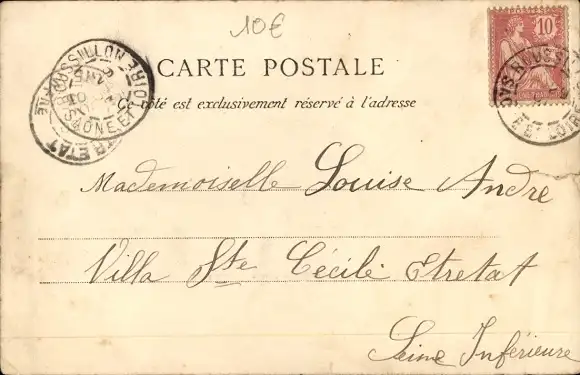 10€
CARTE POSTALE
Ce côté est exclusivement réservé à l'adresse
10
ROUSSILLON
SAONE ET LOIRE
ETRETAT
ET LOIRE
Mademoiselle Louise André
Villa Ste Cécile Etretat
Seine Inférieure